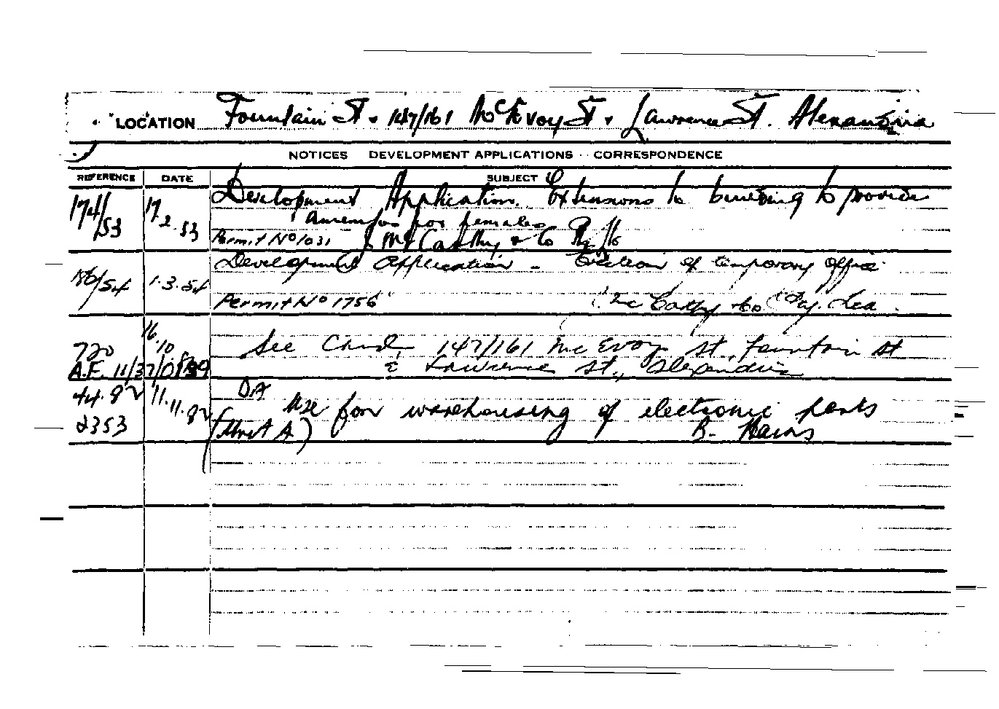 LOCATION Fountain St. 147/161 McEvoy St. Lawrence St. Alexandria
NOTICES DEVELOPMENT APPLICATIONS CORRESPONDENCE
REFERENCE DATE SUBJECT
174/53 17.2.53 Development Application Extensions to building to provide
for females
Permit No 1031 McCarthy & Co
/54 1.3.54 Development Application - Erection of temporary office
Permit No 1756 McCarthy & Co
16.10
720 See Card, 147/161 McEvoy St, Fountain St
& Lawrence St., Alexandria
44.82 11.11.82 DA Use for warehousing of electronic parts
2353 (Unit A) B.